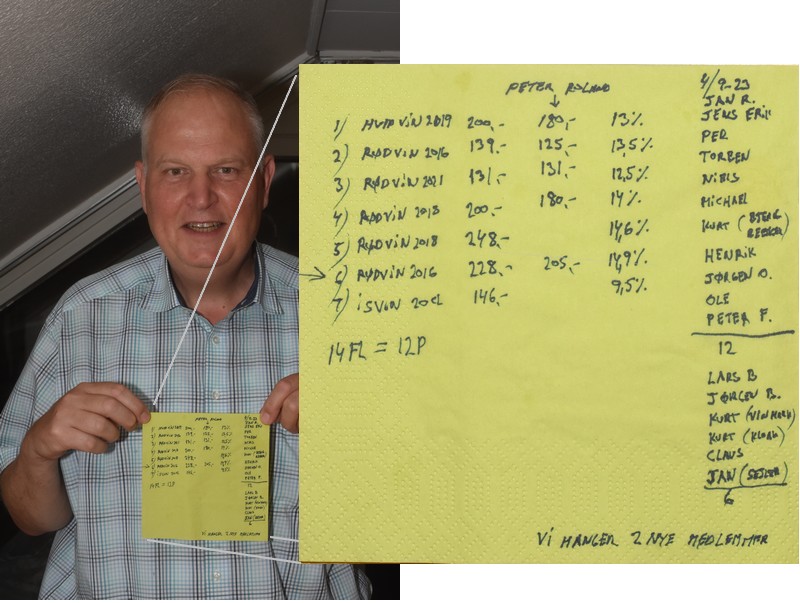 PETER ROLAND
4/9-23
1) HVIDVIN 2019 200,- 180,- 13%
2) RØDVIN 2016 139,- 125,- 13,5%
3) RØDVIN 2021 131,- 131,- 12,5%
4) RØDVIN 2018 200,- 180,- 14%
5) RØDVIN 2018 248,- 14,6%
6) RØDVIN 2016 228,- 205,- 14,9%
7) ISVIN 146,- 9,5%
14FL = 12P
JAN R.
JENS ERIK
PER
TORBEN
NIELS
MICHAEL
KURT (BJERG
HENRIK
JØRGEN O.
OLE
PETER F.
12
LARS B
JØRGEN B.
KURT (VINMARK)
KURT (KLOAK)
CLAUS
JAN (SEJLER)
6
VI MANGER 2 NYE MEDLEMMER